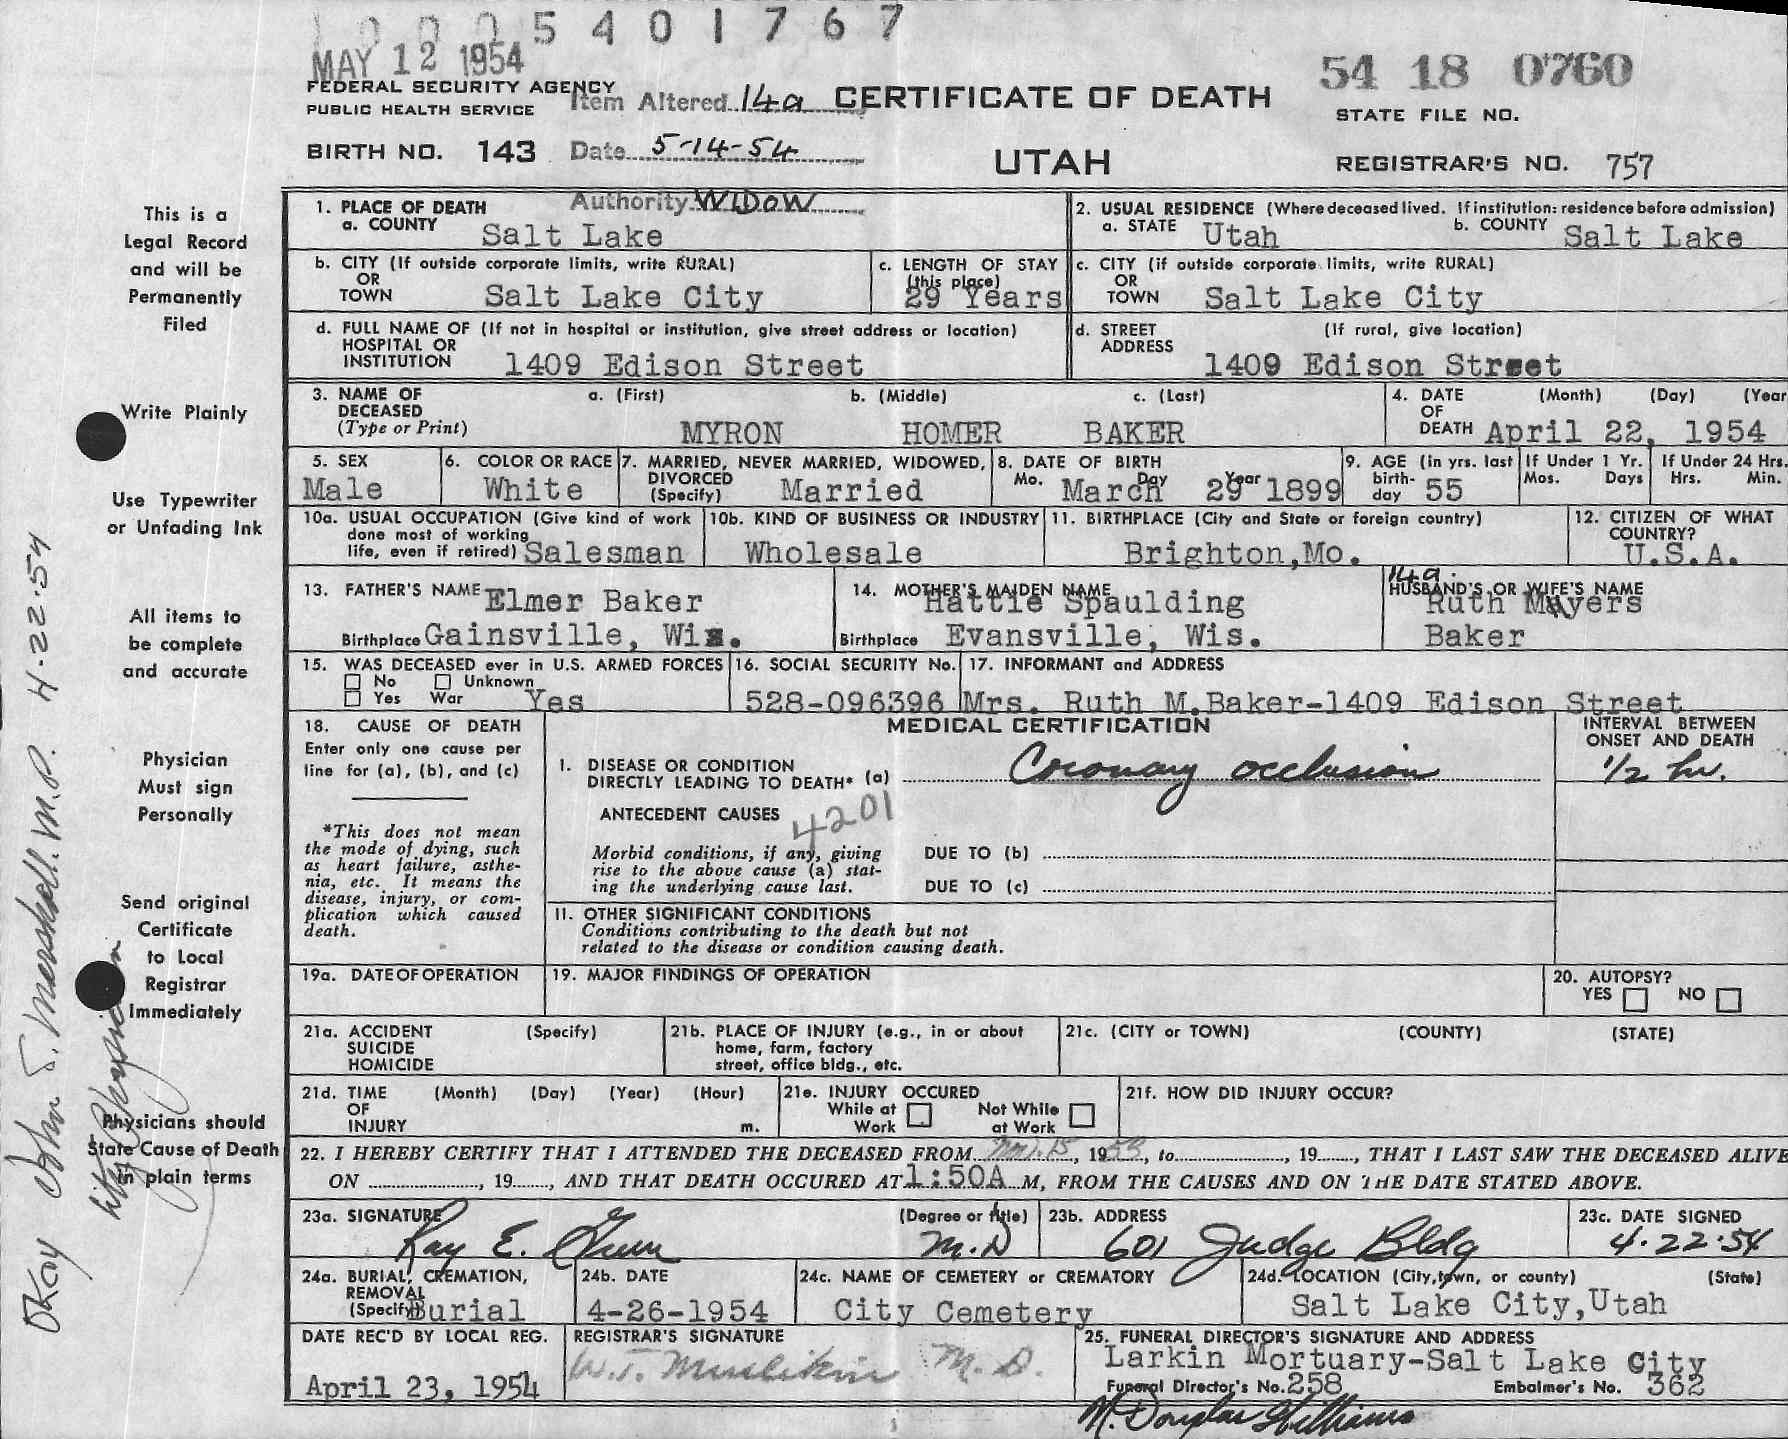 1 0 0 0 5 4 0 1 7 6 7
MAY 12 1954
54 18 0760
FEDERAL SECURITY AGENCY
PUBLIC HEALTH SERVICE
Item Altered 14a
CERTIFICATE OF DEATH
STATE FILE NO.
BIRTH NO. 143
Date 5-14-54
UTAH
REGISTRAR'S NO. 757
Authority WIDOW
This is a
Legal Record
and will be
Permanently
Filed
Write Plainly
Use Typewriter
or Unfading Ink
All items to
be complete
and accurate
Physician
Must sign
Personally
Send original
Certificate
to Local
Registrar
Immediately
Physicians should
State Cause of Death
in plain terms
Okay John S. Marshall. M.D. 4-22-54
City Physician
1. PLACE OF DEATH
a. COUNTY Salt Lake
2. USUAL RESIDENCE (Where deceased lived. If institution: residence before admission)
a. STATE Utah b. COUNTY Salt Lake
b. CITY (If outside corporate limits, write RURAL)
OR
TOWN Salt Lake City
c. LENGTH OF STAY
(this place)
29 Years
c. CITY (if outside corporate limits, write RURAL)
OR
TOWN Salt Lake City
d. FULL NAME OF (If not in hospital or institution, give street address or location)
HOSPITAL OR
INSTITUTION 1409 Edison Street
d. STREET (If rural, give location)
ADDRESS
1409 Edison Street
3. NAME OF a. (First) b. (Middle) c. (Last)
DECEASED
(Type or Print) MYRON HOMER BAKER
4. DATE (Month) (Day) (Year
OF
DEATH April 22, 1954
5. SEX
Male
6. COLOR OR RACE
White
7. MARRIED, NEVER MARRIED, WIDOWED,
DIVORCED
(Specify) Married
8. DATE OF BIRTH
Mo. Day Year
March 29 1899
9. AGE (in yrs. last
birth-
day 55
If Under 1 Yr.
Mos. Days
If Under 24 Hrs.
Hrs. Min.
10a. USUAL OCCUPATION (Give kind of work
done most of working
life, even if retired) Salesman
10b. KIND OF BUSINESS OR INDUSTRY
Wholesale
11. BIRTHPLACE (City and State or foreign country)
Brighton,Mo.
12. CITIZEN OF WHAT
COUNTRY?
U.S.A.
13. FATHER'S NAME Elmer Baker
Birthplace Gainsville, Wis.
14. MOTHER'S MAIDEN NAME
Hattie Spaulding
Birthplace Evansville, Wis.
14a.
HUSBAND'S OR WIFE'S NAME
Ruth Mayers
Baker
15. WAS DECEASED ever in U.S. ARMED FORCES
No Unknown
Yes War Yes
16. SOCIAL SECURITY No.
528-096396
17. INFORMANT and ADDRESS
Mrs. Ruth M.Baker-1409 Edison Street
18. CAUSE OF DEATH
Enter only one cause per
line for (a), (b), and (c)
*This does not mean
the mode of dying, such
as heart failure, asthe-
nia, etc. It means the
disease, injury, or com-
plication which caused
death.
MEDICAL CERTIFICATION
INTERVAL BETWEEN
ONSET AND DEATH
I. DISEASE OR CONDITION
DIRECTLY LEADING TO DEATH* (a) Coronary occlusion 1/2 hr.
ANTECEDENT CAUSES
4201
Morbid conditions, if any, giving
rise to the above cause (a) stat-
ing the underlying cause last.
DUE TO (b)
DUE TO (c)
II. OTHER SIGNIFICANT CONDITIONS
Conditions contributing to the death but not
related to the disease or condition causing death.
19a. DATE OF OPERATION
19. MAJOR FINDINGS OF OPERATION
20. AUTOPSY?
YES NO
21a. ACCIDENT (Specify)
SUICIDE
HOMICIDE
21b. PLACE OF INJURY (e.g., in or about
home, farm, factory
street, office bldg., etc.
21c. (CITY or TOWN) (COUNTY) (STATE)
21d. TIME (Month) (Day) (Year) (Hour)
OF
INJURY m.
21e. INJURY OCCURED
While at Work
Not While at Work
21f. HOW DID INJURY OCCUR?
22. I HEREBY CERTIFY THAT I ATTENDED THE DECEASED FROM Nov. 15, 1953, to, 19, THAT I LAST SAW THE DECEASED ALIVE
ON, 19, AND THAT DEATH OCCURED AT 1:50A M, FROM THE CAUSES AND ON THE DATE STATED ABOVE.
23a. SIGNATURE (Degree or title)
Ray E. M.D
23b. ADDRESS
601 Judge Bldg
23c. DATE SIGNED
4-22-54
24a. BURIAL, CREMATION,
REMOVAL
(Specify) Burial
24b. DATE
4-26-1954
24c. NAME OF CEMETERY or CREMATORY
City Cemetery
24d. LOCATION (City, town, or county) (State)
Salt Lake City,Utah
DATE REC'D BY LOCAL REG.
April 23, 1954
REGISTRAR'S SIGNATURE
W.T. M. D.
25. FUNERAL DIRECTOR'S SIGNATURE AND ADDRESS
Larkin Mortuary-Salt Lake City
Funeral Director's No. 258 Embalmer's No. 362
M. Douglas Williams